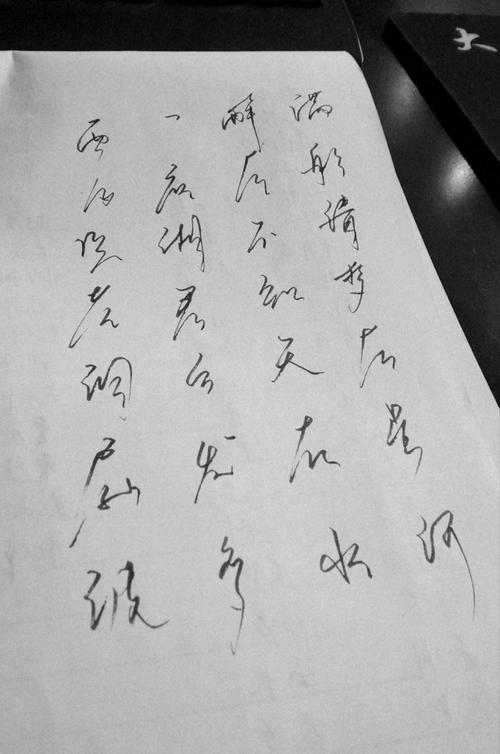 西风吹老洞庭波
一夜湘君白发多
醉后不知天在水
满船清梦压星河